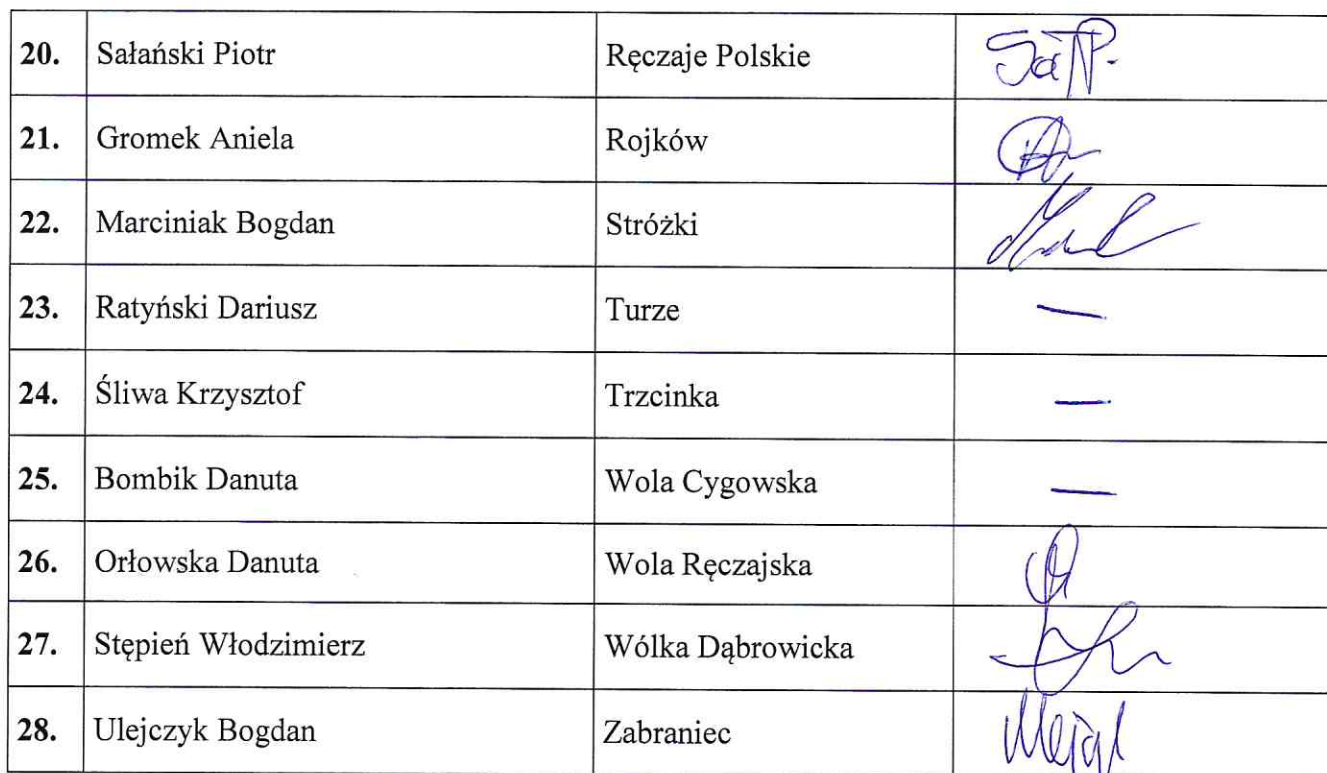 20. Sałański Piotr Ręczaje Polskie
21. Gromek Aniela Rojków
22. Marciniak Bogdan Stróżki
23. Ratyński Dariusz Turze —
24. Śliwa Krzysztof Trzcinka —
25. Bombik Danuta Wola Cygowska —
26. Orłowska Danuta Wola Ręczajska
27. Stępień Włodzimierz Wólka Dąbrowicka
28. Ulejczyk Bogdan Zabraniec